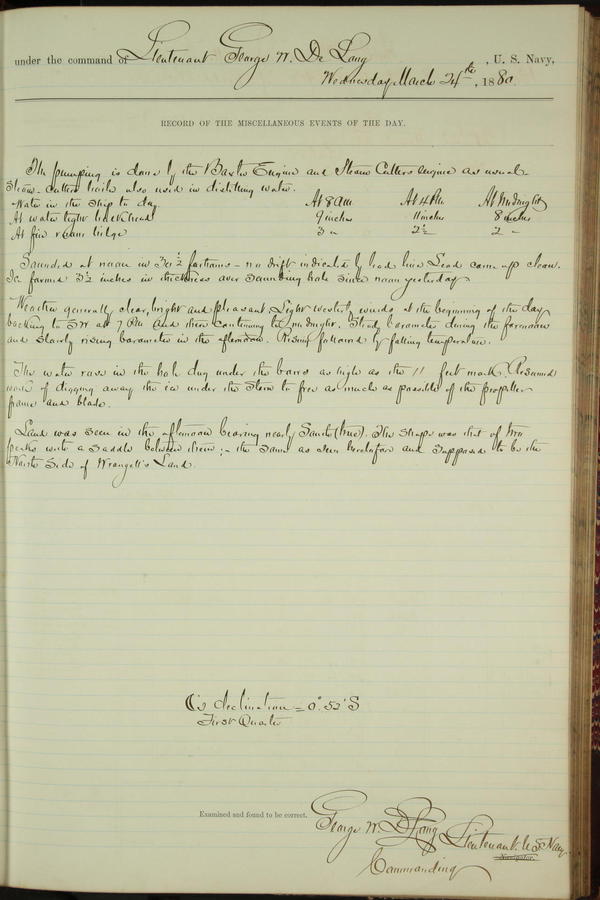 under the command of Lieutenant George W. De Long, U. S. Navy,
Wednesday March 24th, 1880
RECORD OF THE MISCELLANEOUS EVENTS OF THE DAY.
The pumping is done by the Baxter Engine and Steam Cutters engine as usual
Steam-cutters boiler also used in distilling water.
Water in the ship to day At 8 AM At 4 PM At Midnight
At water tight bulkhead 9 inches 11 inches 8 inches
At fire room bilge 3 " 2½ 2 "
Sounded at noon in 30½ fathoms - no drift indicated by lead line Lead came up clean.
Ice formed 3½ inches in thickness over sounding hole since noon yesterday
Weather generally clear, bright and pleasant. Light westerly winds at the beginning of the day
backing to SW at 7 PM and then continuing to midnight. Steady barometer during the forenoon
and slowly rising barometer in the afternoon. Rising followed by falling temperature.
The water rose in the hole dug under the bows as high as the 11 feet mark. Resumed
work of digging away the ice under the stern to free as much as possible of the propeller
frame and blade.
Land was seen in the afternoon bearing nearly South (true). The shape was that of two
peaks with a saddle between them; - the same as seen heretofore and supposed to be the
North Side of Wrangell's Land.
☾'s declination = 0° 52' S
First Quarter
Examined and found to be correct.
George W. De Long Lieutenant U.S. Navy
Navigator.
Commanding